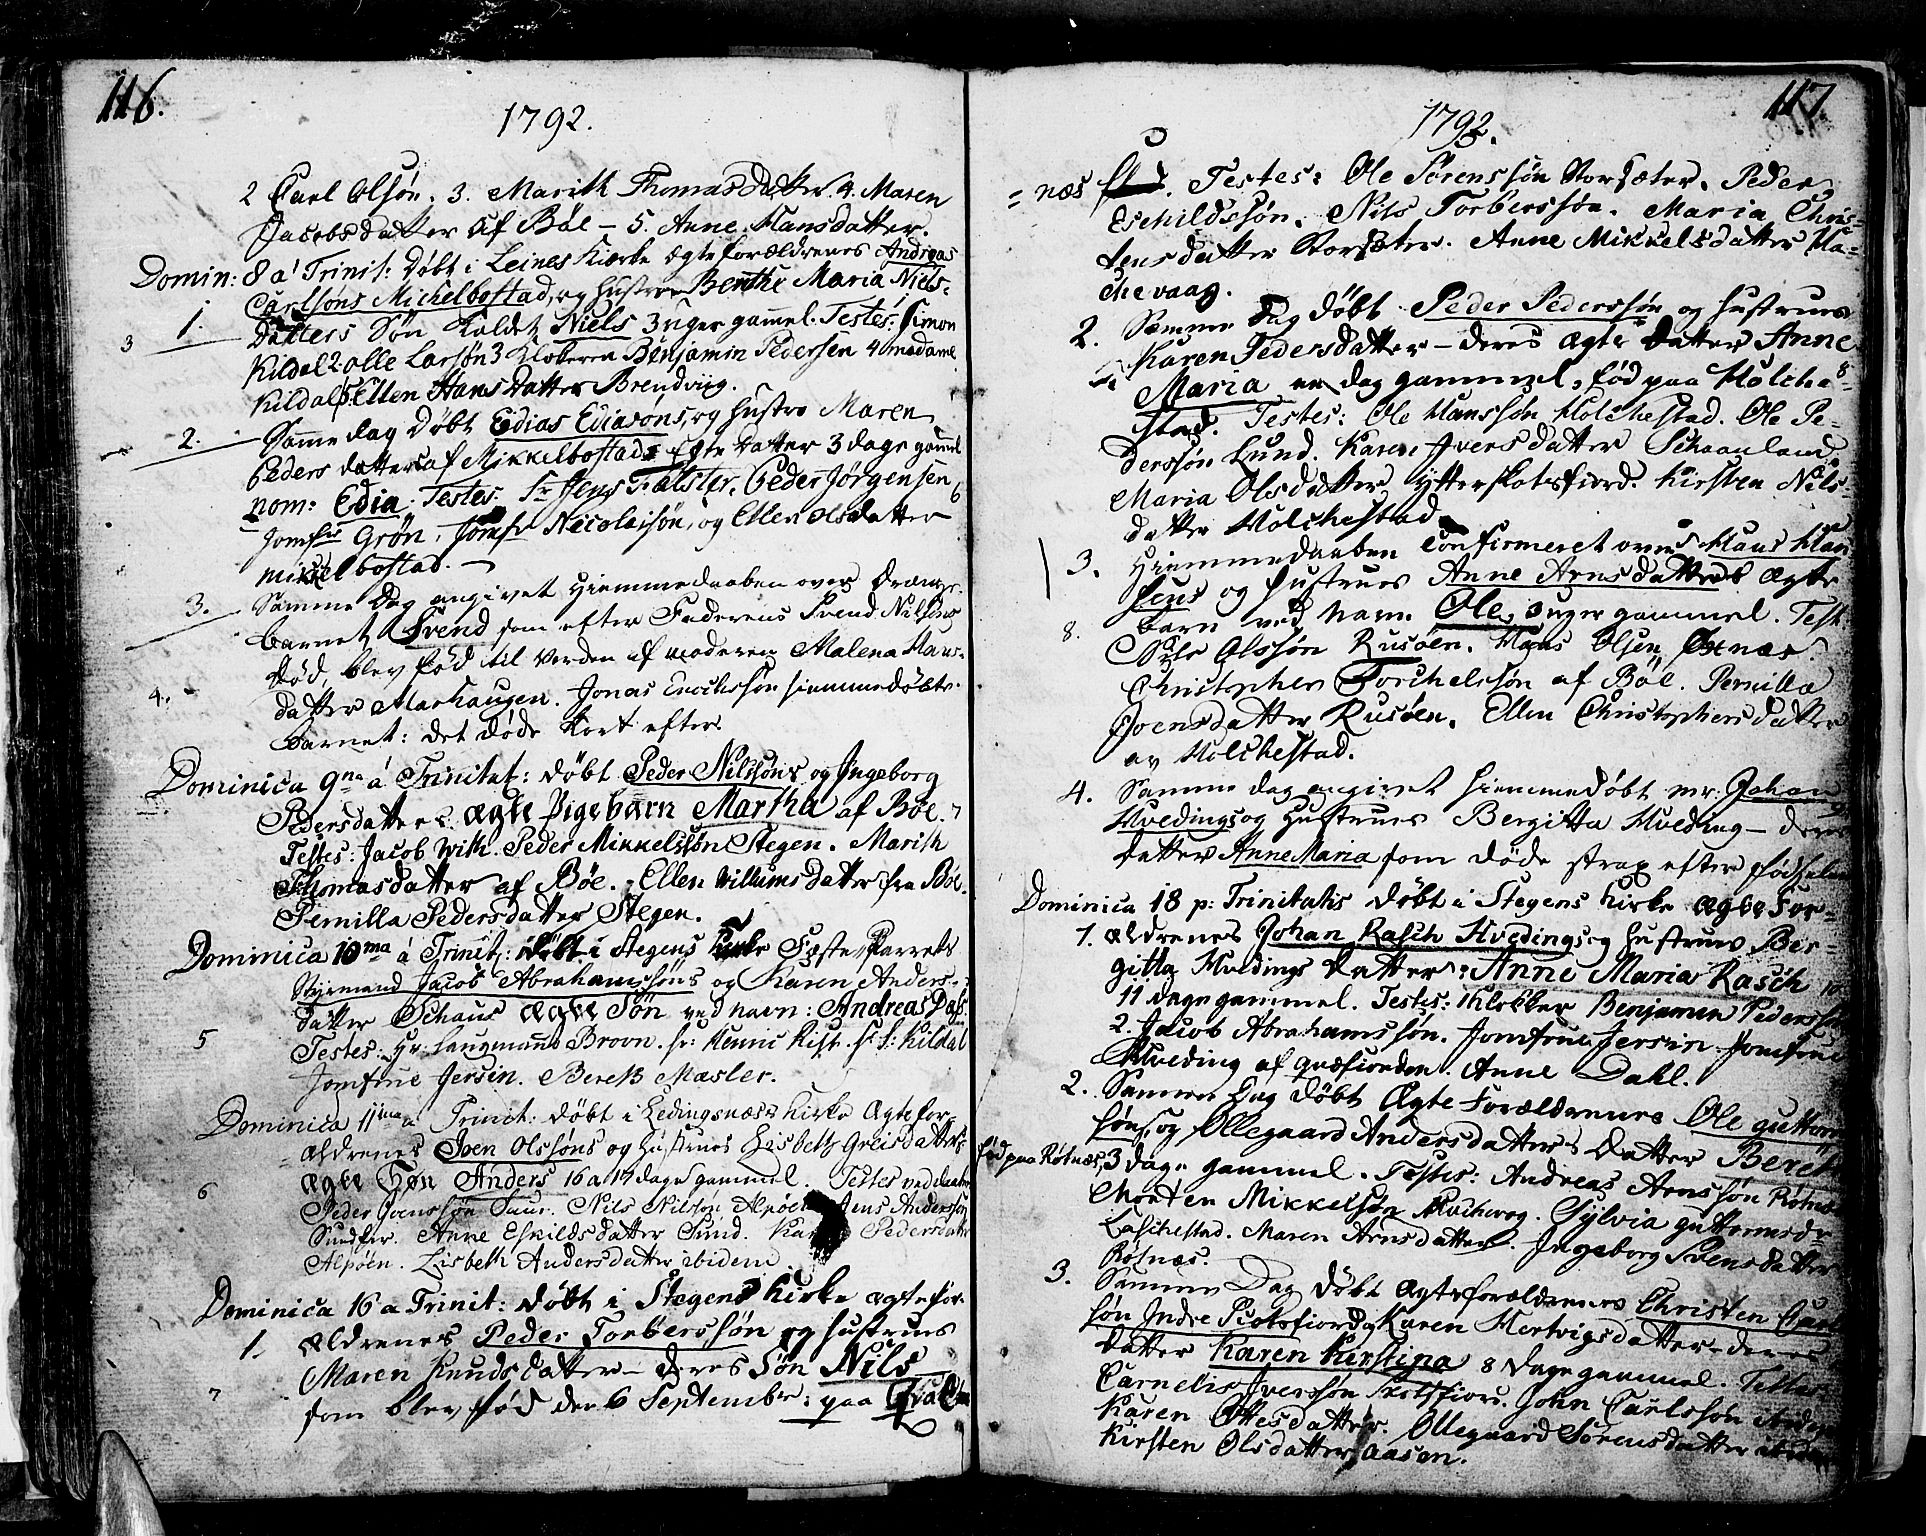 116.
1792.
2 Carl Olsøn. 3. Marith Thomasdatter. 4. Maren
Jacobsdatter af Böe – 5. Anne Hansdatter.
Domin: 8 a Trinit: døbt i Leines Kirke ægteforældrenes Andreas
Carlsøns Michelbostad, og hustroe Benthe Maria Niels-
1. datters Søn kaldet Niels 3 uger gammel. Testes: Simon
3
Kildal 2. olle Larsøn 3 Klokeren Benjamin Pedersen 4 madame
Kildal 5 Ellen Hansdatter Brendviig.
2. Samme dag døbt Edias Ediasøns, og hustro Maren
Peders datters af Mikkelbostad Egte datter 3 dage gammel
nom: Edia. Testes: Sr Jens Falster. Peder Jørgensen
6
Jomfru Grøn, Jomfr Nicolaisøn, og Ellen olsdatter
mikkelbostad. –
3. Samme Dag angivet hiemmedaaben over drænge-
barnet Svend som efter Faderens Svend Nilsens
død, blev fød til Verden af moderen Malena Hans-
4.
datter Marhaugen. Jonas Enochsøn hiemmedøbte
barnet: det døde kort efter.
Dominica 9na á Trinitat: døbt Peder Nilssøns og Ingeborg
Pedersdatters ægte Pigebarn Martha af Böe.
7
Testes: Jacob With. Peder Mikkelssøn Stegen. Marith
Thomasdatter af Böe. Ellen Willumsdatter fra Böe.
Pernilla Pedersdatter Stegen.
Dominica 10ma á Trinit: døbt i Stegens Kirke Fæste Parrets
Styrmand Jacob Abrahamssøns og Karen Anders-
datter Schaus ægte Søn ved navn: Andreas Dass.
5
Testes: Hr: Laugmand Brovn. sr: Hennic Rist. sr S: Kildal
Jomfrue Jersin. Bereth Mæsler.
Dominica 11ma a Trinit: døbt i Ledingsnæs Kirke Ægtefor-
ældrenes Iven Olssøns og hustrues Lisbeth Greisdatters
ægte Søn Anders 16 a 14 dage gammel. Testes ved daaben
6
Peder Joenssøn Saur. Nils Nilsøn Alpöen. Jens Anderssøn
Sundfer. Anne Eskildsdatter Sund. Pedersdatter
Alpöen. Lisbeth Andersdatter ibidem
Dominica 16 a Trinit: døbt i Stegens Kirke ægtefor-
1. ældrenes Peder Torberssøn og hustrues
Maren Knudsdatter – deres Søn Nils
7
som blev fød den 6 September: paa
117.
1792.
= næs. Testes: Ole Sørenssøn Storsæter. Peder
Eschildssøn. Nils Torberssøn. Maria Chris-
tensdatter Storsæter. Anne Mikkelsdatter Ha-
chevaag.
2. Samme Dag døbt Peder Pederssøn og hustrues
Karen Pedersdatter – deres ægte datter Anne
8
Maria en dag gammel, fød paa Holche-
stad. Testes: Ole Hanssøn Holchestad. Ole Pe-
derssøn Lund. Karen Iversdatter Schaanland.
Maria Olsdatter ytterskotsfiord. Kirsten Nils-
datter Holchestad.
3. Hiemmedaaben confirmeret over Hans Han-
sens og hustrues Anne Arnsdatters ægte
barn ved navn Ole, 3 uger gammel. Test:
8.
Nils Olssøn Rusöen. Hans Olsen Øxnæs.
Christopher Torchelssøn af Böe. Pernilla
Joensdatter Rusöen. Ellen Christophersdatter
av Holchestad.
4. Samme dag angivet hiemmedøbt mr: Johan
Hvedings og hustrues Bergitta Hveding – deres
9
datter Anne Maria som døde strax efter fødselen
Dominica 18 p: Trinitatis døbt i Stegens Kirke ægte For-
1. ældrenes Johan Rasch Hvedings og hustrues Ber-
gitta Hvedings datter: Anne Maria Rasch
10
11 dage gammel. Testes: 1 Klokker Benjamin Pederssøn
2. Jacob Abrahamssøn. Jomfrue Jersin. Jomfrue
Hveding af Anne Dahl.
2. Samme Dag døbt Ægte Forældrenes Ole guttorm-
søns, og Ollegaard Andersdatters datter Bereth
fød paa Røtnæs, 3 dage gammel. Testes: Andreas Arnssøn Røtnæs
Morten Mikkelsøn. Sylvia guttormsdr
Laschestad. Maren Arnsdatter. Ingeborg Svensdatter
Røtnæs.
3. Samme Dag døbt ægteforældrenes Christen Carl-
søn Indre Skotsfiord og Karen Hertvigsdatter – deres
datter Karen Kirstina 8 dage gammel. Testes
Cornelis Iverssøn Skotsfiord. John Carlssøn
Karen Ottesdatter. Ollegaard Sørensdatter
Kirsten Olsdatter Aasen.